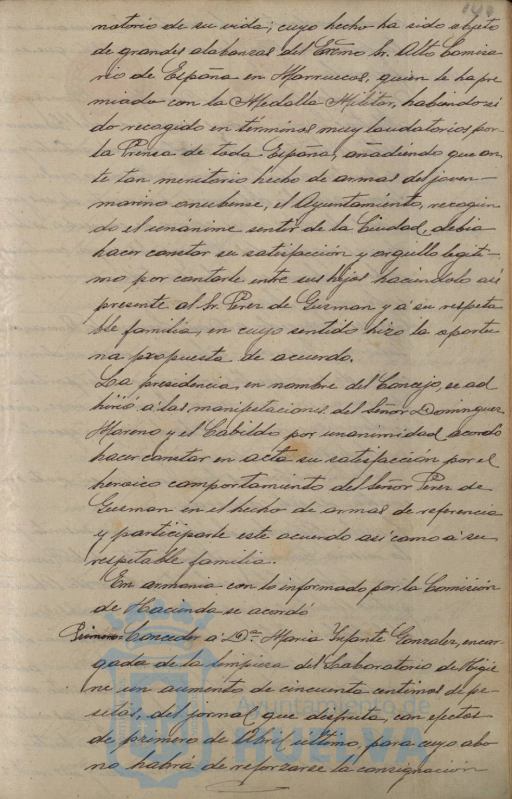 notorio de su vida; cuyo hecho ha sido objeto
de grandes alabanzas del Excmo Sr. Alto Comisa
rio de España en Marruecos, quien le ha pre
miado con la Medalla Militar, habiendo si
do recogido en términos muy laudatorios por
la Prensa de toda España, añadiendo que an
te tan meritorio hecho de armas del joven
marino onubense, el Ayuntamiento, recogien
do el unánime sentir de la Ciudad, debia
hacer constar su satisfacción y orgullo legiti-
mo por contarle entre sus hijos haciendolo asi
presente al Sr. Perez de Guzman y á su respeta
ble familia, en cuyo sentido hizo la oportu
na propuesta de acuerdo.
La presidencia, en nombre del Concejo, se ad
hirió á las manifestaciones del Señor Dominguez
Moreno y el Cabildo por unanimidad acordó
hacer constar en acta su satisfacción por el
heroico comportamiento del Señor Perez de
Guzman en el hecho de armas de referencia
y participarle este acuerdo asi como á su
respetable familia.
Em armonia con lo informado por la Comisión
de Hacienda se acordó
Primero: Conceder á Dª. Maria Infante Gonzalez, encar
gada de la limpieza del Laboratorio de Higie
ne un aumento de cincuenta centimos de pe
setas, del jornal que disfruta, con efectos
de primero de Abril último, para cuyo abo
no habrá de reforzarse la consignación
Ayuntamiento de
HUELVA